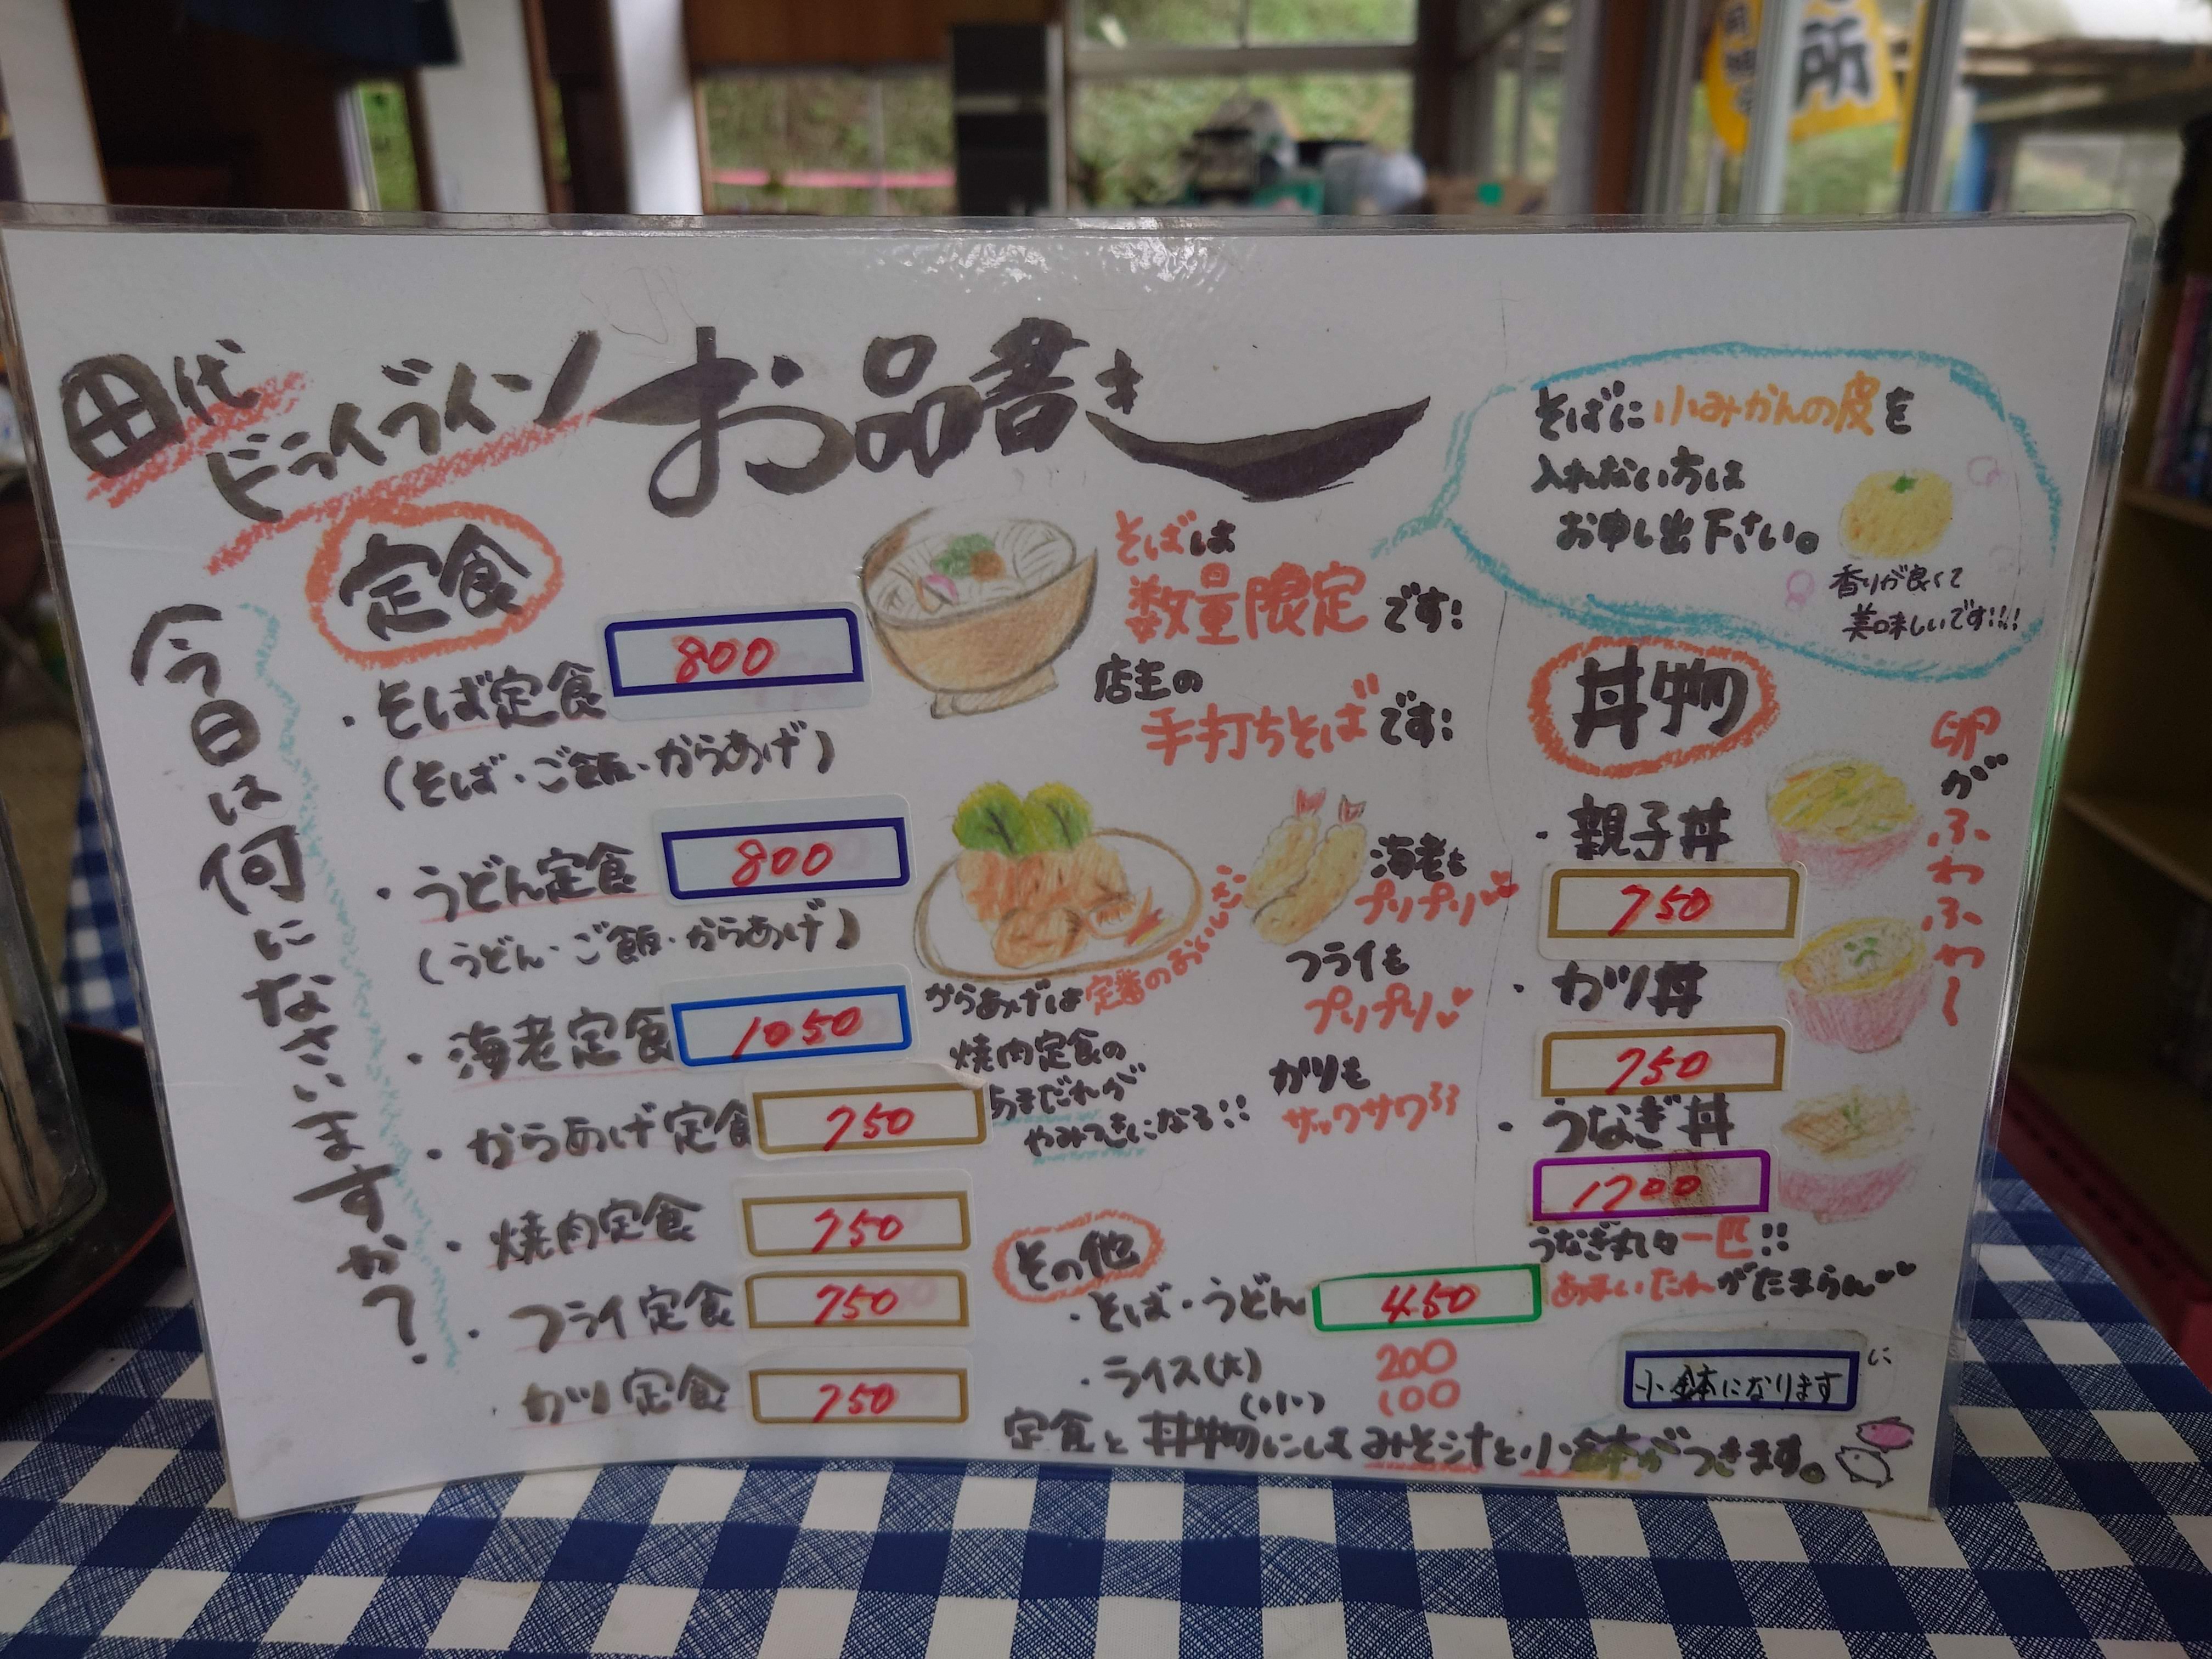 所
田代
ドライブイン
お品書き
今日は何になさいますか?
定食
・そば定食 800
(そば・ご飯・からあげ)
・うどん定食 800
(うどん・ご飯・からあげ)
・海老定食 1050
・からあげ定食 750
・焼肉定食 750
・フライ定食 750
・カツ定食 750
そばは
数量限定です!
店主の
手打ちそばです!
からあげは定番のおいしさ
焼肉定食の
あまだれが
やみつきになる!!
海老も
プリプリ♥
フライも
プリプリ♥
カツも
サックサク
その他
・そば・うどん 450
・ライス(大) 200
(小) 100
そばに小みかんの皮を
入れない方は
お申し出下さい。
香りが良くて
美味しいです!!!
丼物
卵がふわふわ〜
・親子丼
750
・カツ丼
750
・うなぎ丼
1700
うなぎ丸々一匹!!
あまいたれがたまらん♥♥
小鉢になります
に
定食と丼物にはみそ汁と小鉢がつきます。